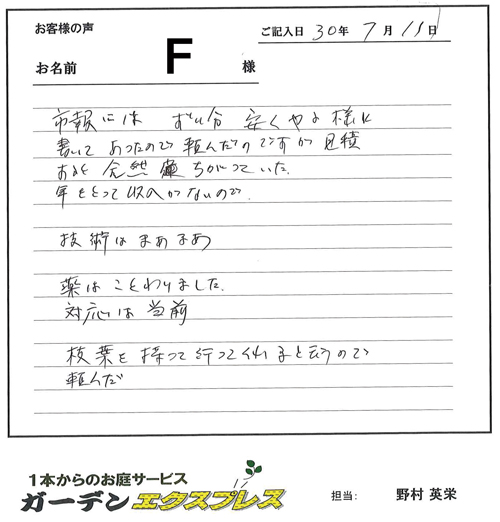 お客様の声
ご記入日 30年 7月 15日
お名前 F 様
市報には ずい分 安くやる様に
書いてあったので 頼んだのですが 見積
すると 全然 ちがっていた。
年をとって収入がないので。
技術はまあまあ
薬はことわりました。
対応は当前
枝葉を持って行ってくれると云うので
頼んだ
1本からのお庭サービス
ガーデンエクスプレス
担当: 野村 英栄